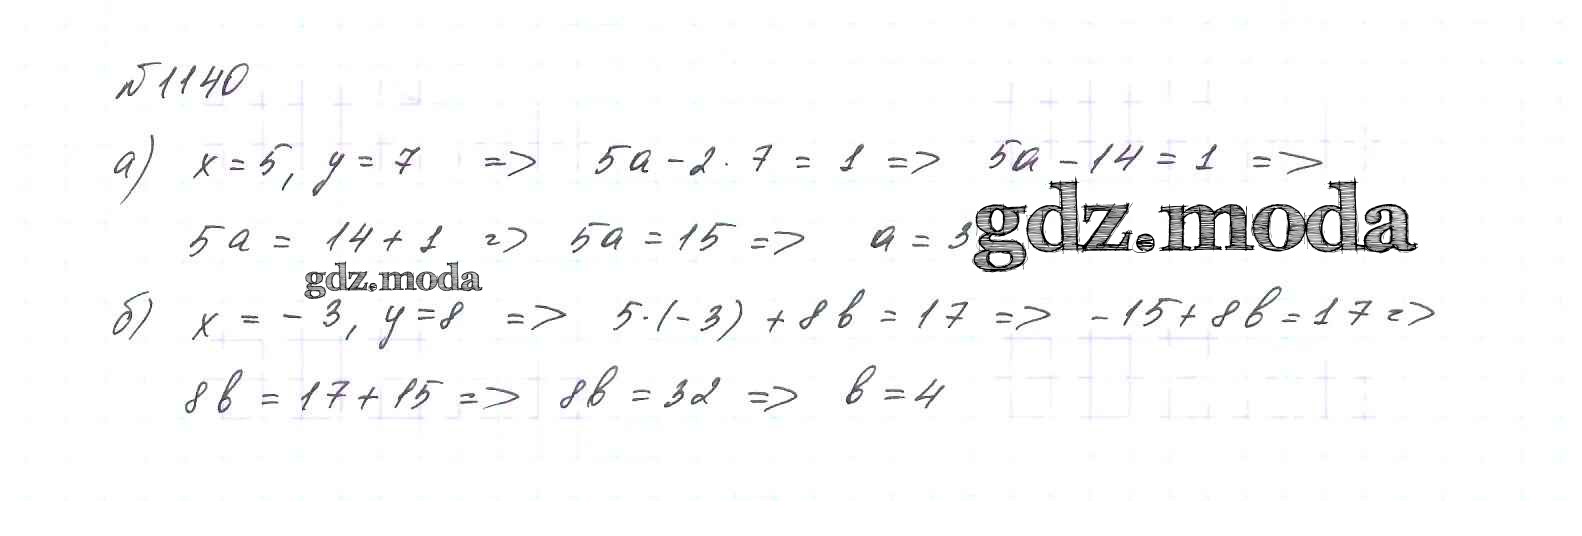 №1140
а) x = 5, y = 7 => 5a - 2 · 7 = 1 => 5a - 14 = 1 =>
5a = 14 + 1 => 5a = 15 => a = 3 gdz.moda
gdz.moda
б) x = - 3, y = 8 => 5 · (- 3) + 8b = 17 => - 15 + 8b = 17 =>
8b = 17 + 15 => 8b = 32 => b = 4